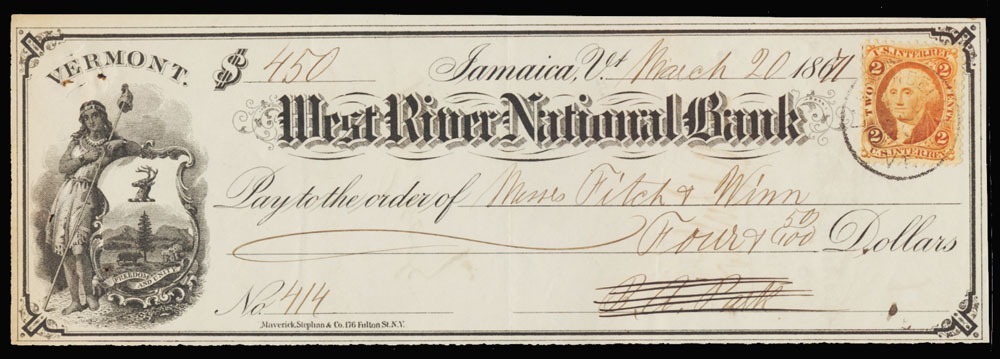 VERMONT.
$ 450 Jamaica, Vt March 20 1871
West River National Bank
Pay to the order of Messrs Fitch & Winn
Four & 50/100 Dollars
No. 414
FREEDOM AND UNITY
Maverick, Stephan & Co. 176 Fulton St. N.Y.
U.S. INTER. REV.
2 2
TWO CENTS
2 2
U.S. INTER. REV.